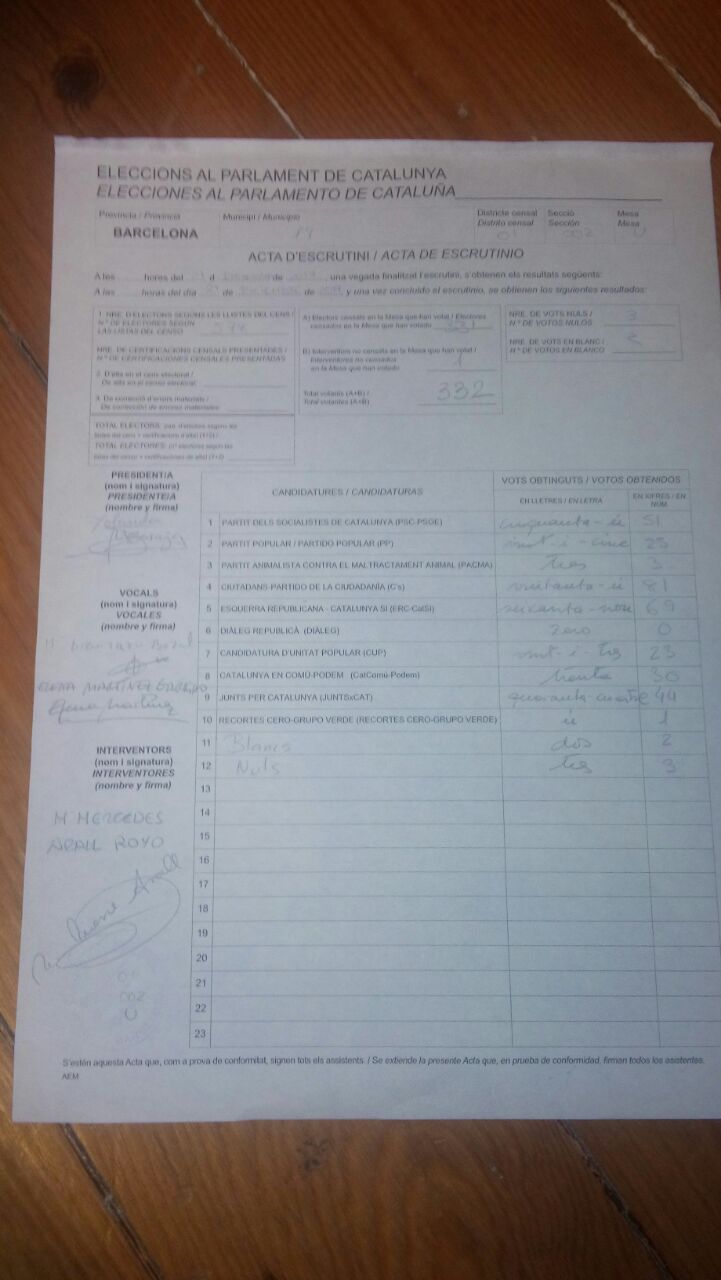 ELECCIONS AL PARLAMENT DE CATALUNYA
ELECCIONES AL PARLAMENTO DE CATALUÑA
Província / Provincia Municipi / Municipio Districte censal Secció Mesa
Distrito censal Sección Mesa
BARCELONA 01 002 U
ACTA D'ESCRUTINI / ACTA DE ESCRUTINIO
A les hores del d de una vegada finalitzat l'escrutini, s'obtenen els resultats següents:
A las horas del día de de y una vez concluido el escrutinio, se obtienen los siguientes resultados:
1. NRE. D'ELECTORS SEGONS LES LLISTES DEL CENS /
N.º DE ELECTORES SEGÚN
LAS LISTAS DEL CENSO
NRE. DE CERTIFICACIONS CENSALS PRESENTADES /
N.º DE CERTIFICACIONES CENSALES PRESENTADAS
2. D'alta en el cens electoral /
De alta en el censo electoral
3. De correcció d'errors materials /
De corrección de errores materiales
A) Electors censats en la Mesa que han votat / Electores
censados en la Mesa que han votado 331
B) Interventors no censats en la Mesa que han votat /
Interventores no censados
en la Mesa que han votado 1
Total votants (A+B) /
Total votantes (A+B) 332
NRE. DE VOTS NULS / 3
N.º DE VOTOS NULOS
NRE. DE VOTS EN BLANC / 2
N.º DE VOTOS EN BLANCO
PRESIDENT/A
(nom i signatura)
PRESIDENTE/A
(nombre y firma)
VOCALS
(nom i signatura)
VOCALES
(nombre y firma)
ELENA MARTÍNEZ
Elena Martínez
INTERVENTORS
(nom i signatura)
INTERVENTORES
(nombre y firma)
Mª MERCEDES
ARALL ROYO
01
002
U
CANDIDATURES / CANDIDATURAS VOTS OBTINGUTS / VOTOS OBTENIDOS
EN LLETRES / EN LETRA EN XIFRES / EN NÚM.
1 PARTIT DELS SOCIALISTES DE CATALUNYA (PSC-PSOE) cinquanta-u 51
2 PARTIT POPULAR / PARTIDO POPULAR (PP) vint-i-cinc 25
3 PARTIT ANIMALISTA CONTRA EL MALTRACTAMENT ANIMAL (PACMA) tres 3
4 CIUTADANS-PARTIDO DE LA CIUDADANÍA (C's) vuitanta-u 81
5 ESQUERRA REPUBLICANA - CATALUNYA SÍ (ERC-CatSí) seixanta-nou 69
6 DIÀLEG REPUBLICÀ (DIÀLEG) zero 0
7 CANDIDATURA D'UNITAT POPULAR (CUP) vint-i-tres 23
8 CATALUNYA EN COMÚ-PODEM (CatComú-Podem) trenta 30
9 JUNTS PER CATALUNYA (JUNTSxCAT) quaranta-quatre 44
10 RECORTES CERO-GRUPO VERDE (RECORTES CERO-GRUPO VERDE) u 1
11 Blancs dos 2
12 Nuls tres 3
13
14
15
16
17
18
19
20
21
22
23
S'estén aquesta Acta que, com a prova de conformitat, signen tots els assistents. / Se extiende la presente Acta que, en prueba de conformidad, firman todos los asistentes.
AEM